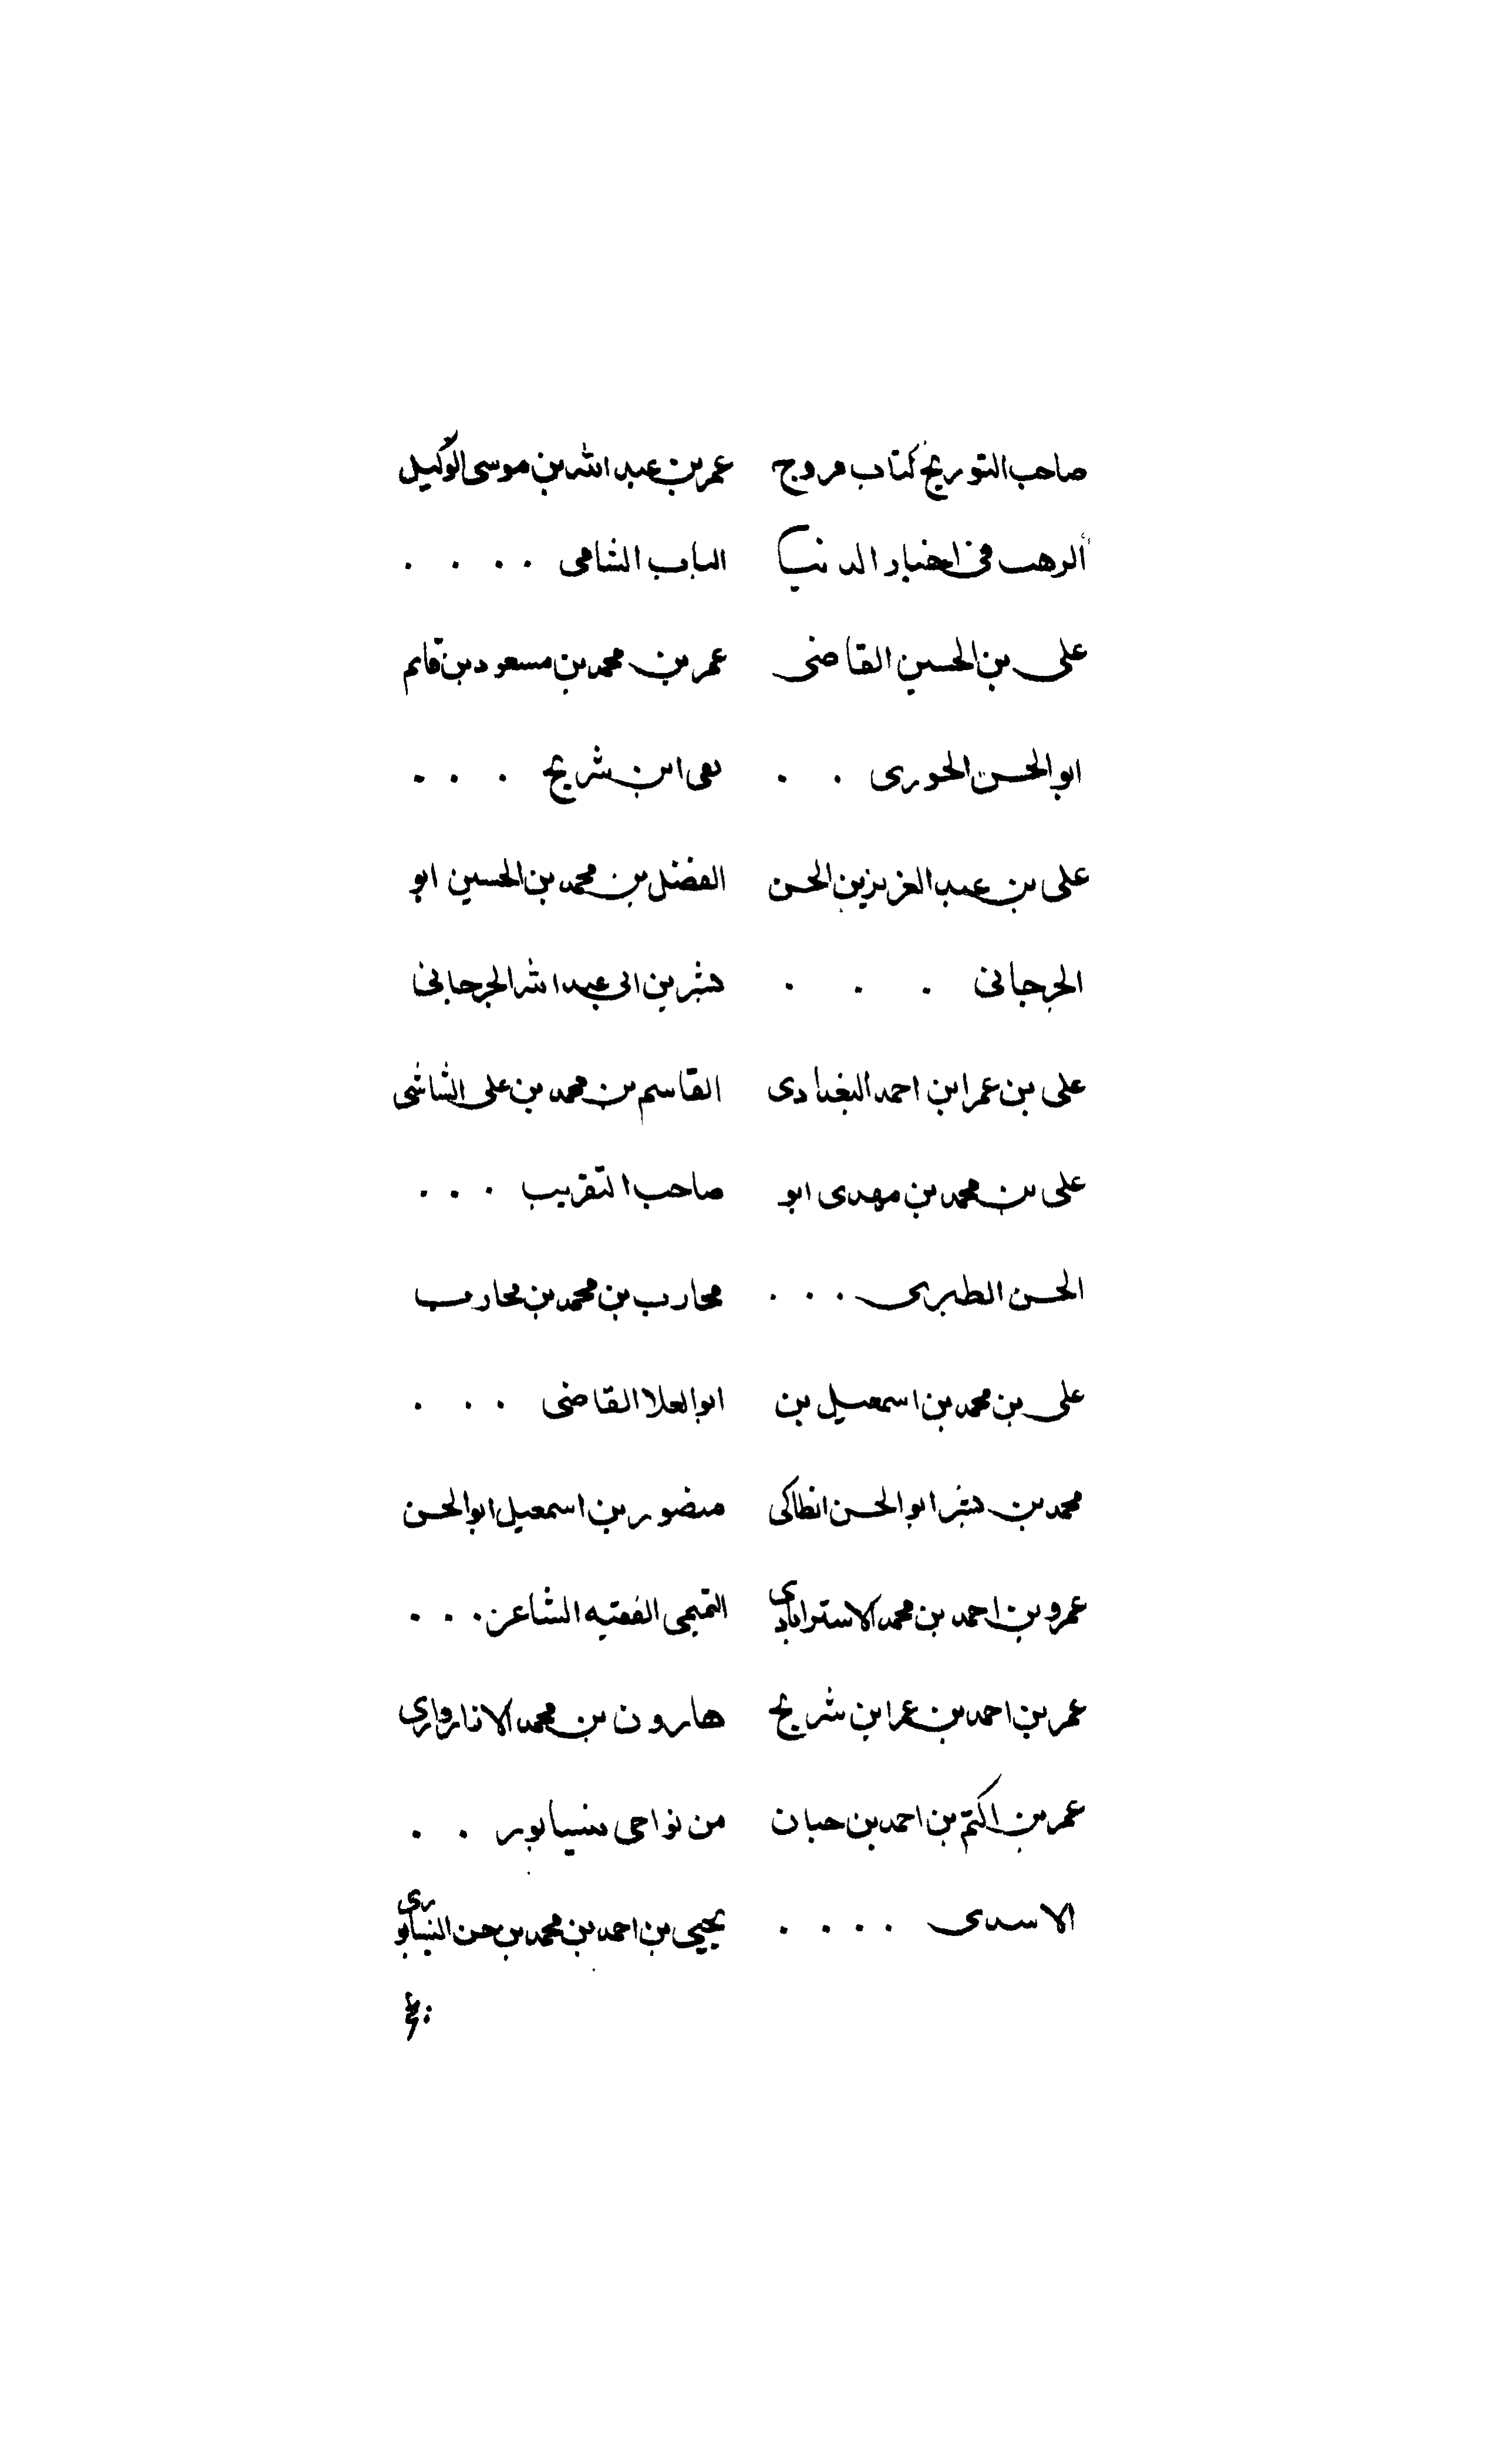 صاحب التوريخ كتاب مروج
الرهب فى اخبار الدنيا
على بن الحسين القاضى
ابو الحسن الحورى . .
على بن عبد العزيز بن الحسن
الجرجانى . . .
على بن عمر ابن احمد البغدادى
على بن محمد بن مهدى ابو
الحسن الطبرى . . .
على بن محمد بن اسمعيل بن
محمد بن بشر ابو الحسن انطاكى
عمرو بن احمد بن محمد الاسترابادى
عمر بن احمد بن عمر ابن شريح
عمر بن اكتم بن احمد بن حبان
الاسدى . . . .
عمر بن عبد الله بن موسى الوكيل
الباب الشامى . . . .
عمر بن محمد بن مسعود بن قايم
ابن شريح . . .
الفضل بن محمد بن الحسين ابو
بشر بن ابى عبد الله الجرجانى
القاسم بن محمد بن على الشاشى
صاحب التقريب . . .
محارب بن محمد بن محارب
ابو العلا القاضى . . .
منصور بن اسمعيل ابو الحسن
التميمى الفقيه الشاعر . . .
هارون بن محمد
من نواحى نيسابور . .
يحيى بن احمد بن محمد بن حسن النيسابورى